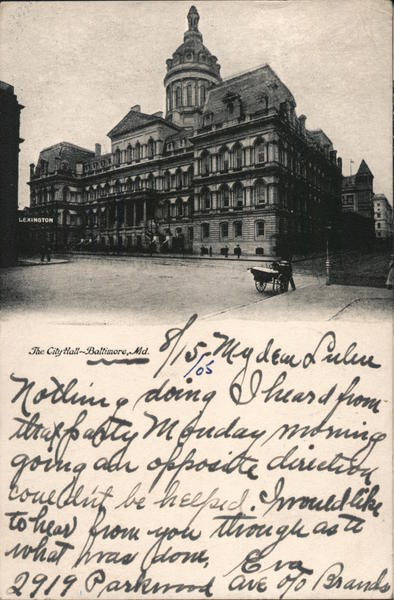 LEXINGTON
The City Hall - Baltimore, Md.
8/15/05 My dear Lulu
Nothing doing I heard from
that party Monday morning
going an opposite direction
couldn't be helped. I would like
to hear from you though as to
what was done. Eva
2919 Parkwood ave c/o Brands